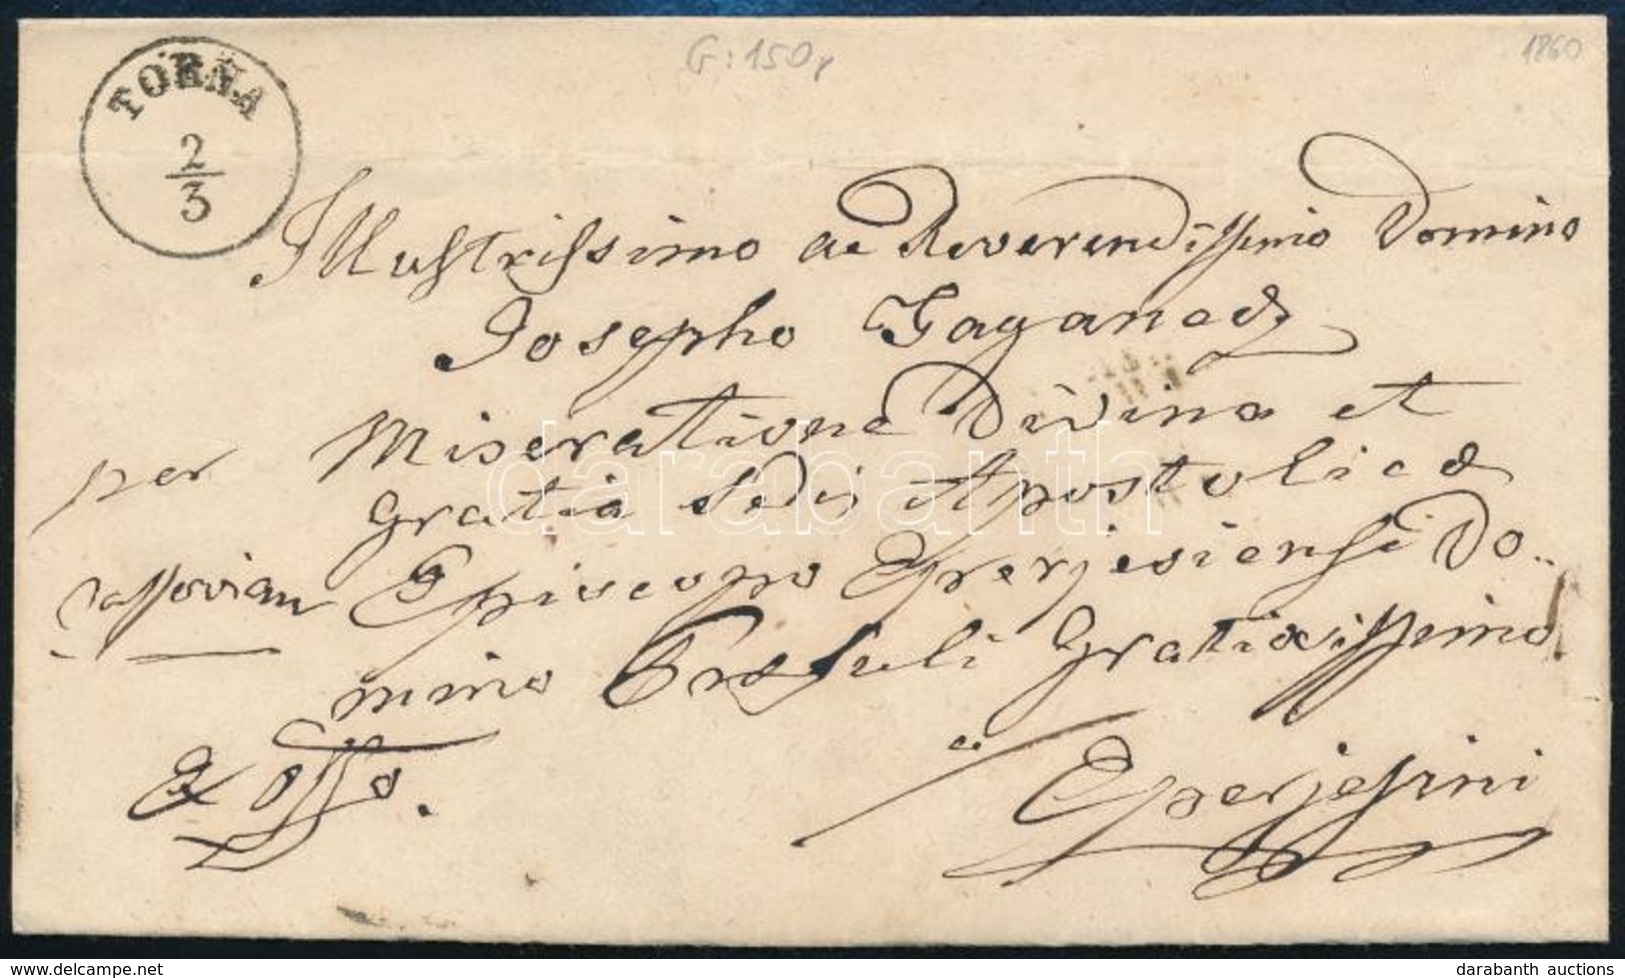 G: 150,
1860
TORNA
2
3
Illustrissimo ac Reverendissimo Domino
Josepho Gaganecz
Miseratione Divina et
per Gratia Sedis Apostolicae
Cassoviam Episcopo Eperjesiensi Do-
mino Praesuli Gratiosissimo
Ex offo.
Eperjessini
darabanth
darabanth auctions